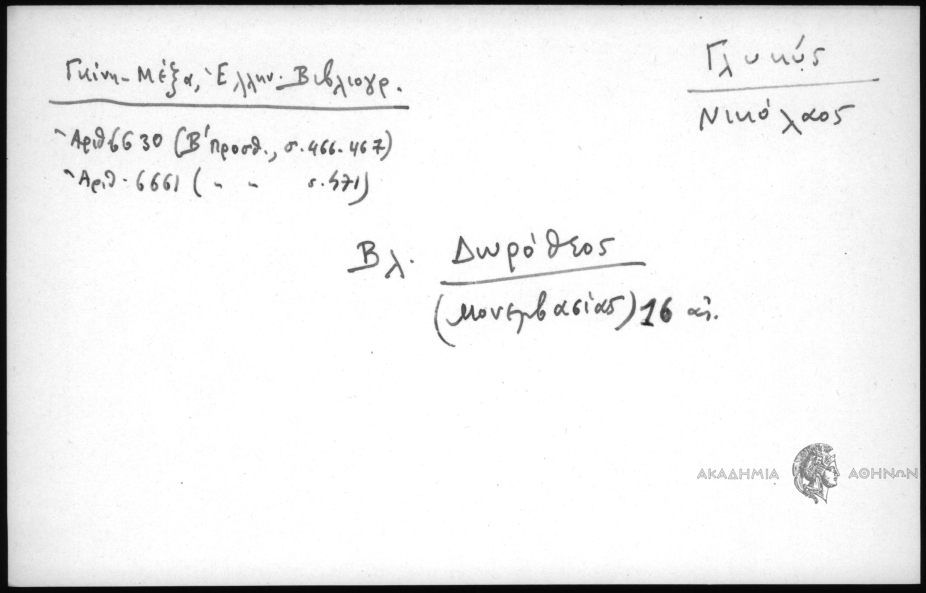 Γκίνη-Μέξα, Ἑλλην. Βιβλιογρ.
Γλυκύς
Νικόλαος
Ἀριθ 6630 (Β' προσθ., σ. 466-467)
Ἀριθ. 6661 ( " " σ. 471)
Βλ. Δωρόθεος
(Μονεμβασίας) 16 αἰ.
ΑΚΑΔΗΜΙΑ ΑΘΗΝΩΝ